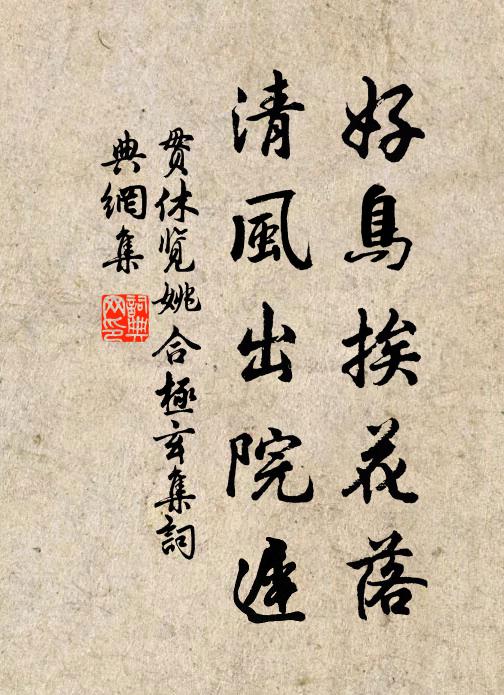 好鳥挨花落
清風出院遲
貫休覽姚合極玄集詞
典網集
詞典網印